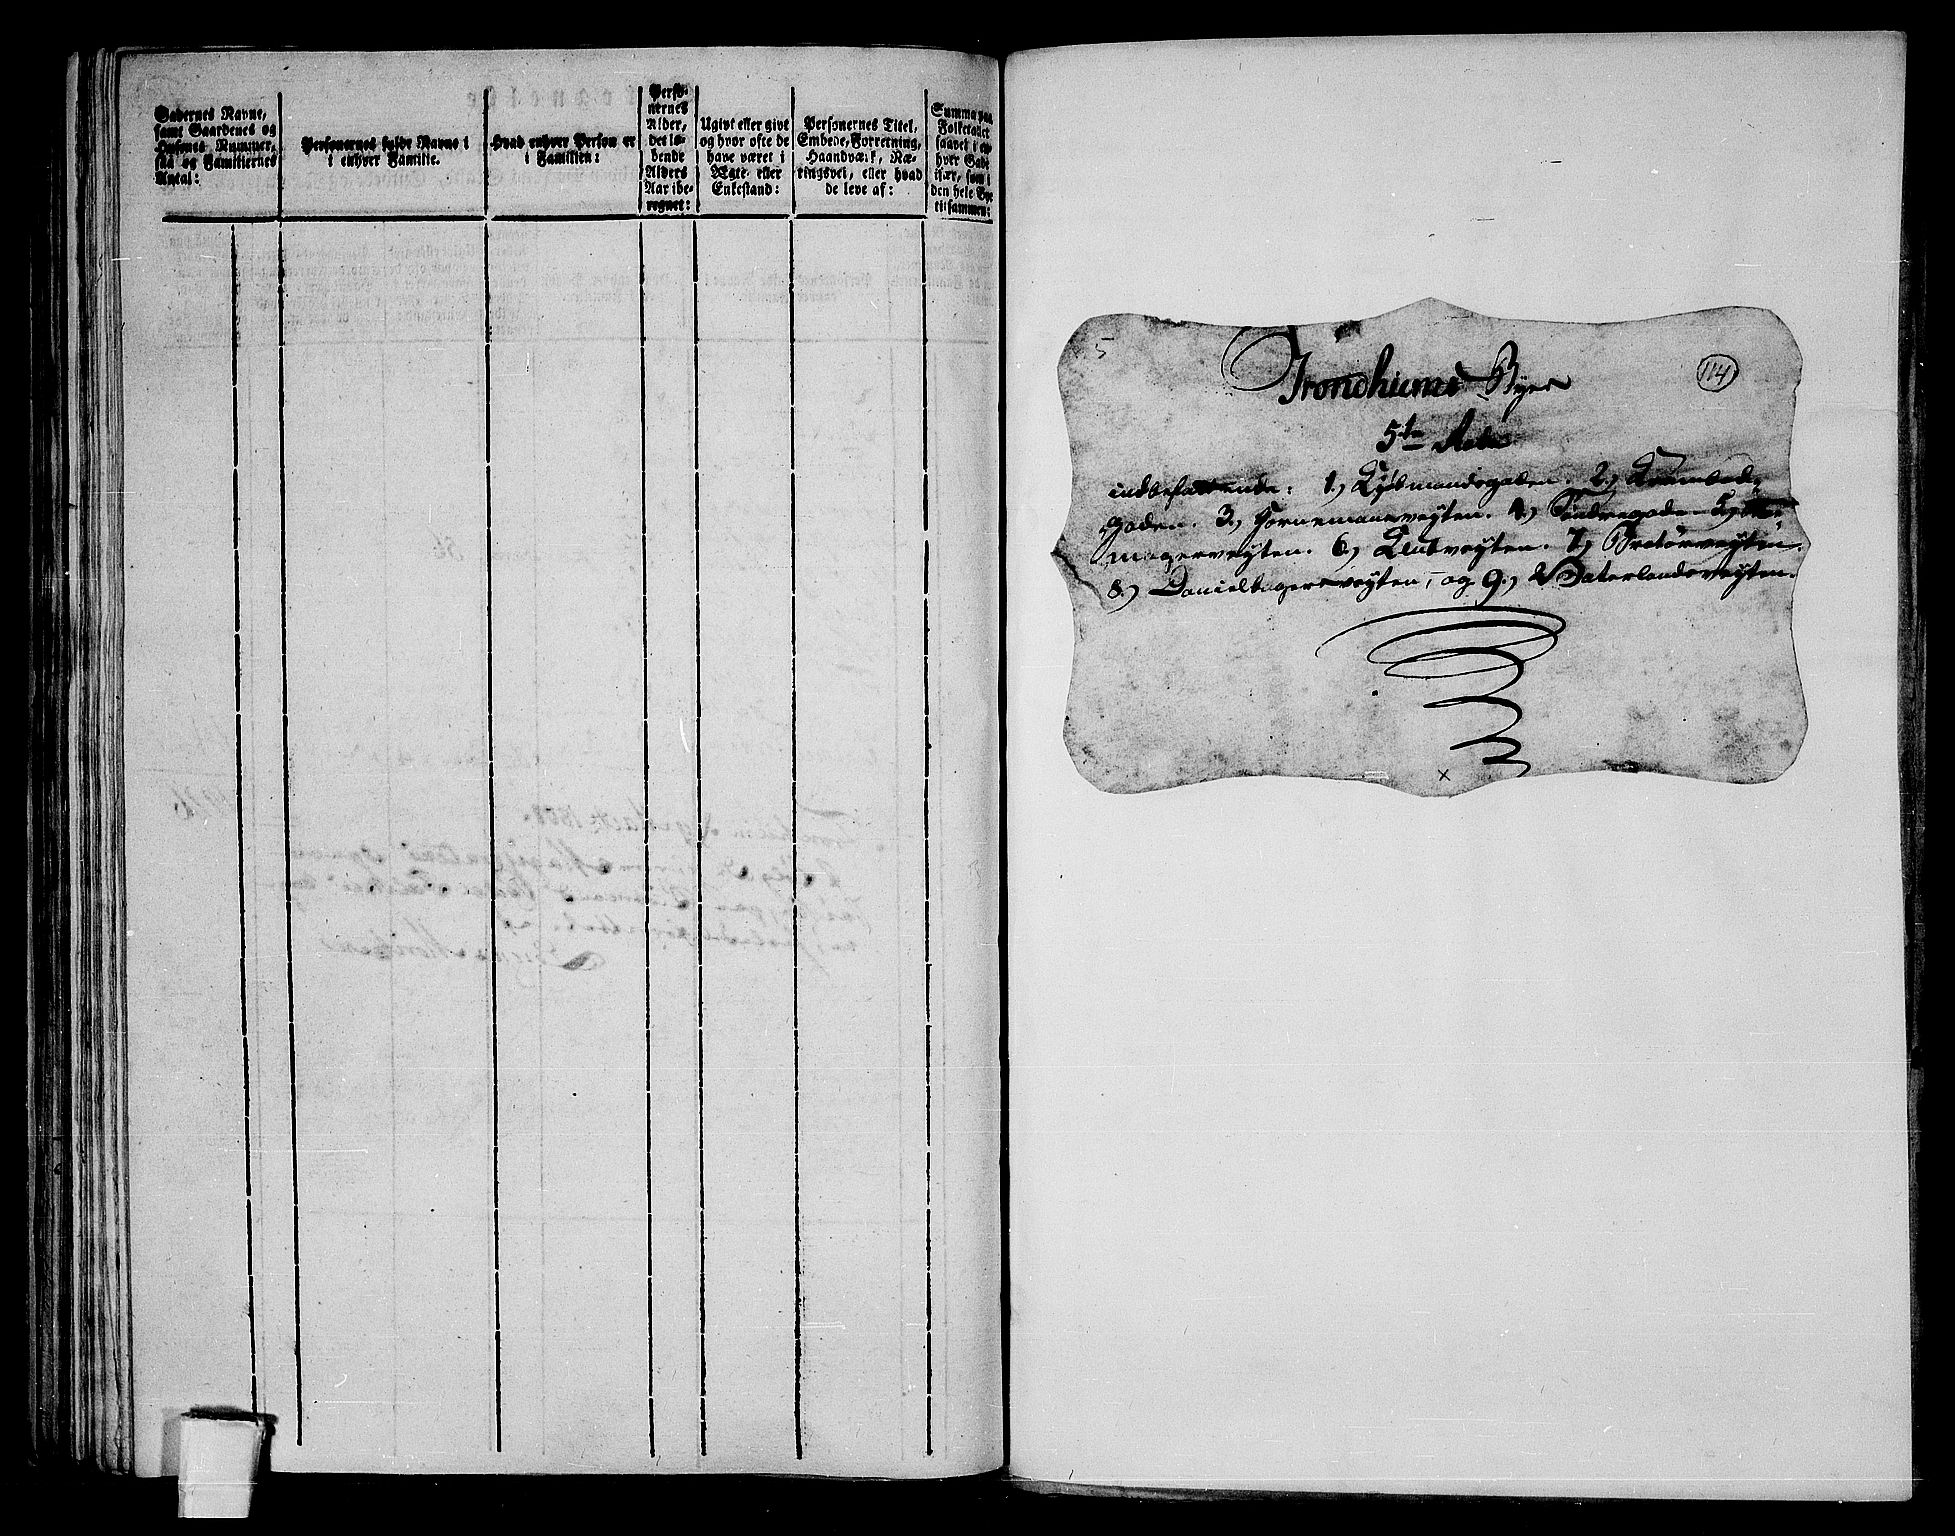 Gadernes Navne,
samt Gaardenes og
Husenes Nummer,
saa og Familiernes
Antal:
Personernes fulde Navne i
i enhver Familie.
Hvad enhver Person er
i Familien:
Perso-
nernes
Alder,
det lø-
bende
Alders
Aar ibe-
regnet:
Ugivt eller givt
og hvor ofte de
have været i
Ægte- eller
Enkestand:
Personernes Titel,
Embede, Forretning,
Haandværk, Næ-
ringsvei, eller hvad
de leve af:
Summa paa
Folketallet
saavel i en-
hver Gade
især, som i
den hele Bye
tilsammen:
5
114
Trondhiems Byes
5te Rode
indbefattende: 1.) Kjøbmandsgaden. 2.) Krambod-
gaden. 3.) Hornemansveyten. 4.) Søndregaden 5.)
magerveyten. 6.) Klubveyten. 7.) Bratørveyten.
8.) Danielbagersveyten, og 9.) Vaterlandsveyten.